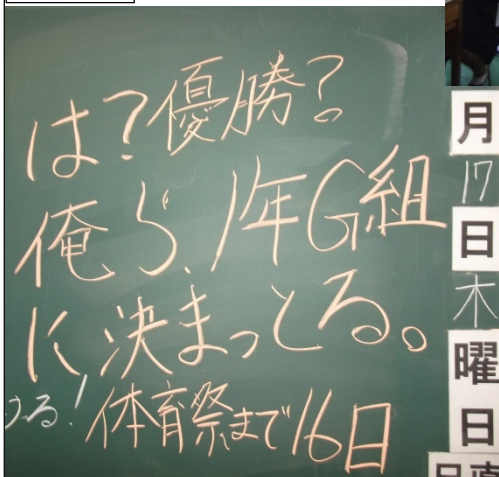 は?優勝?
俺ら、1年G組
に決まっとる。
ける!体育祭まで16日
月
17
日
木
曜
日
日直